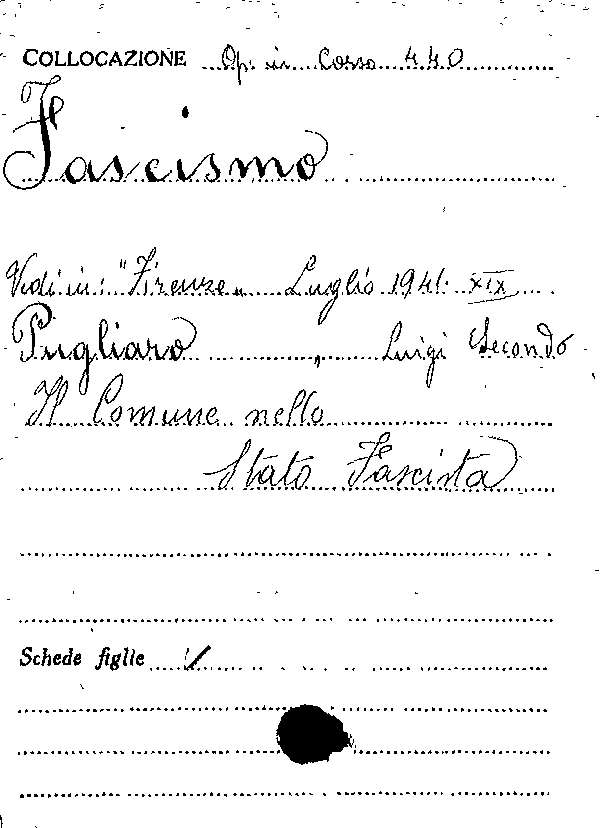 COLLOCAZIONE Op. in Corso 440
Fascismo
Vedi in: "Firenze" Luglio 1941 XIX
Pugliaro „ Luigi Secondo
Il Comune nello
Stato Fascista
Schede figlie